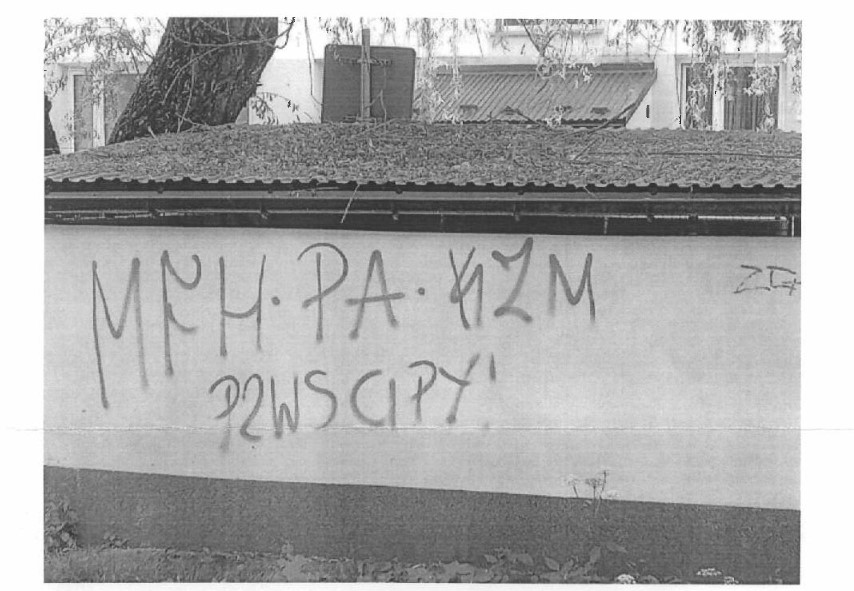 MFH·PA·XIZM
PZWS CIPY!
ZG